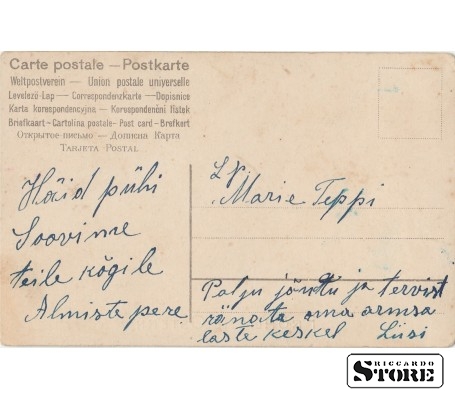 Carte postale — Postkarte
Weltpostverein — Union postale universelle
Levelező-Lap — Correspondenzkarte — Dopisnice
Karta korespondencyjna — Korespondenční lístek
Briefkaart - Cartolina postale - Post card - Brefkort
Открытое письмо — Дописна Карта
Tarjeta Postal
Häid pühi
Soovime
teile kõgile
Almiste pere
Lp.
Marie Teppi
Palju jõudu ja tervist
oma armsa
laste keskel Liisi
RICCARDO
STORE